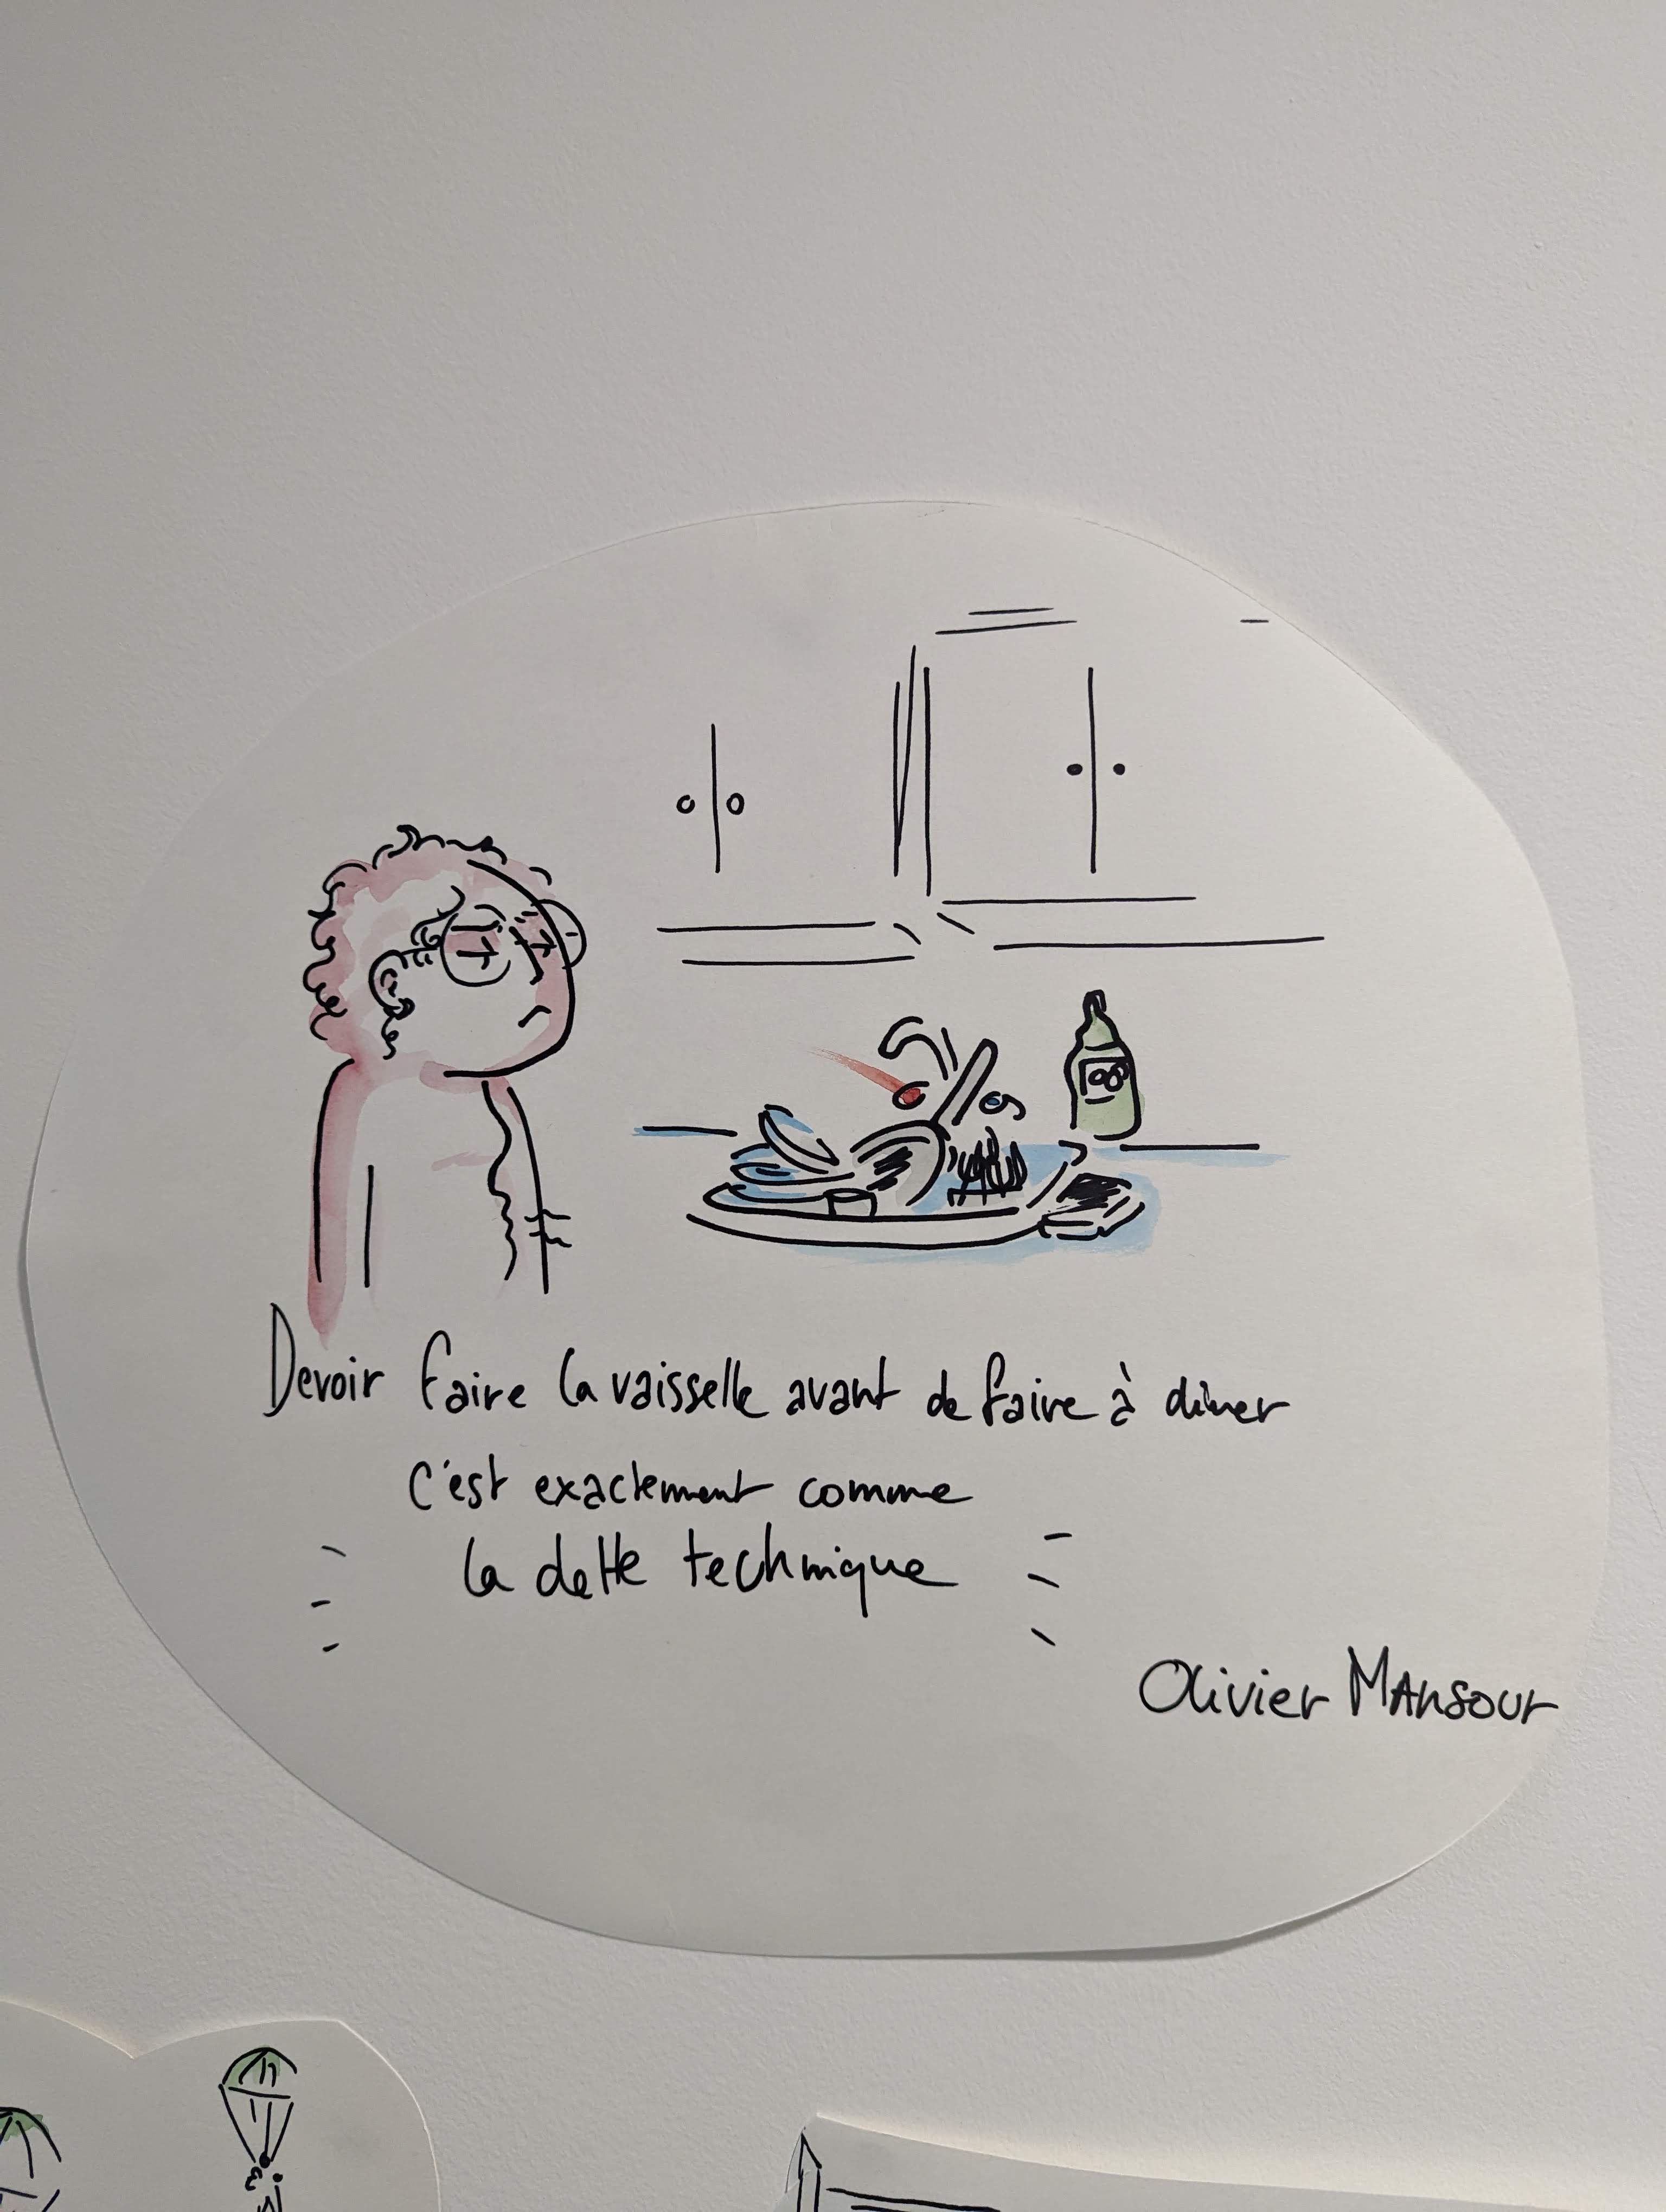 Devoir faire la vaisselle avant de faire à dîner
c'est exactement comme
la dette technique
Olivier Mansour